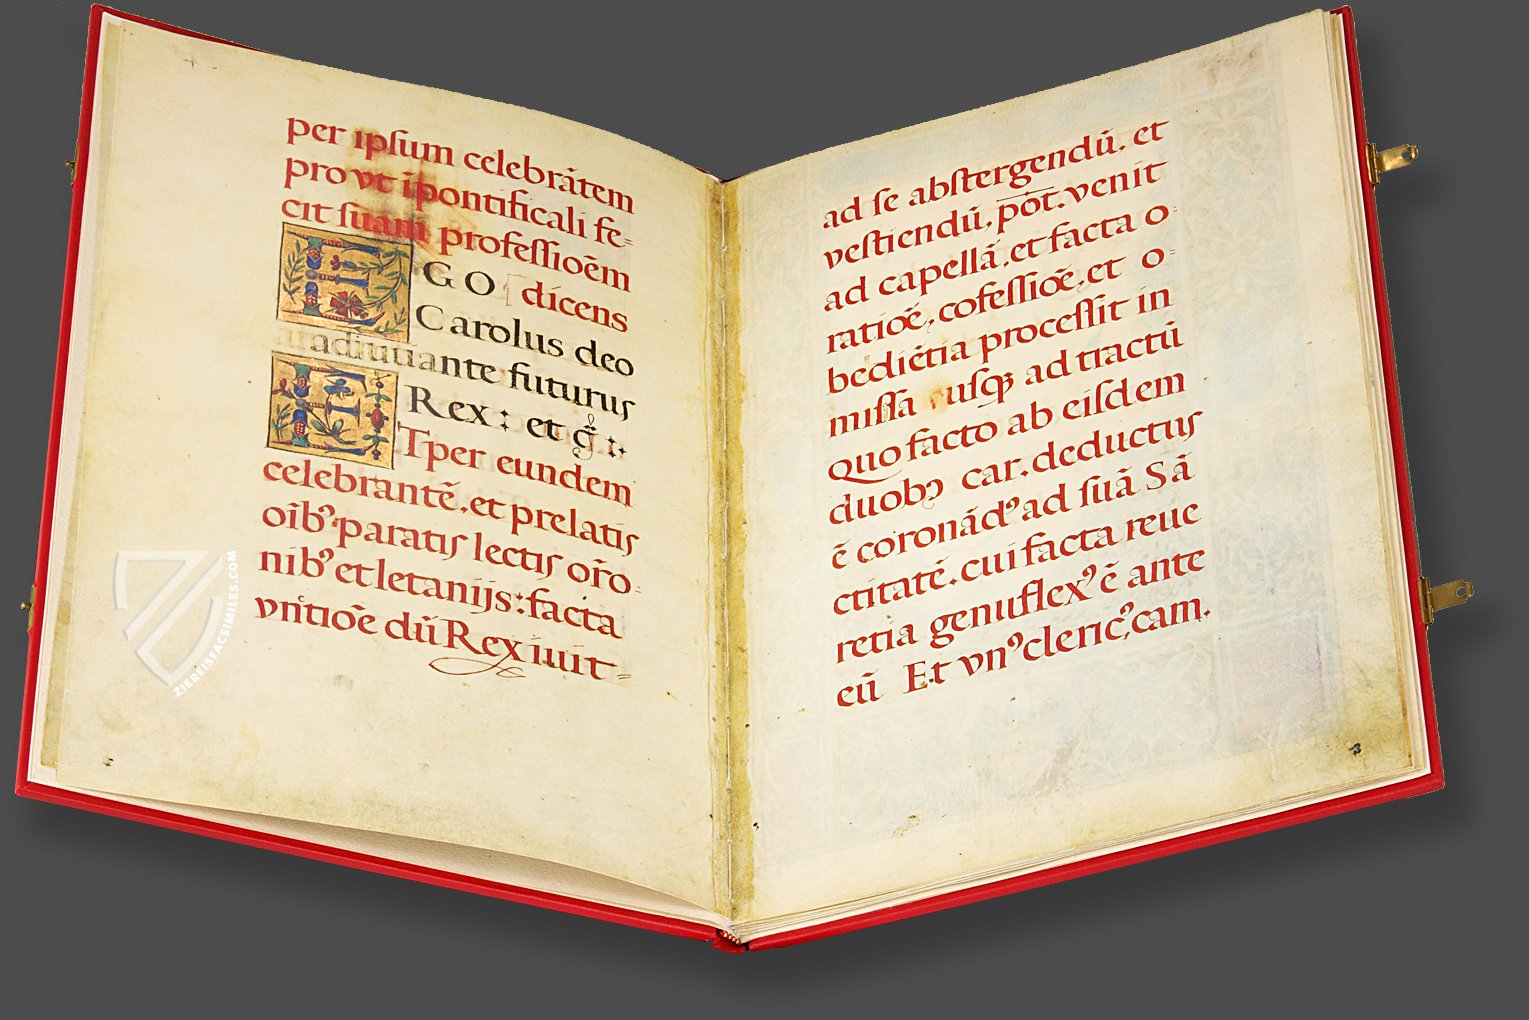 per ipſum celebrãtem
pro vt i pontificali fe=
cit ſuam profeſſioẽm
EGO dicens
Carolus deo
adiuuante futurus
Rex: et g̃:
ET per eundem
celebrantẽ. et prelatis
oĩbꝰ paratis lectis or̃o
nibꝰ et letanijs: facta
vntioẽ dũ Rex iuit
ad ſe abſtergendũ. et
veſtiendũ. põt. venit
ad capellã. et facta o
ratioẽ, cofeſſioẽ, et o
bediẽtia proceſſit in
miſſa uſqꝫ ad tractũ
Quo facto ab eiſdem
duobꝰ car. deductus
ẽ coronãdꝰ ad ſuã Sã
ctitatẽ. cui facta reue
retia genuflexꝰ ẽ ante
eũ Et vnꝰ clericꝰ, cam.
3
ZIEREISFACSIMILES.COM